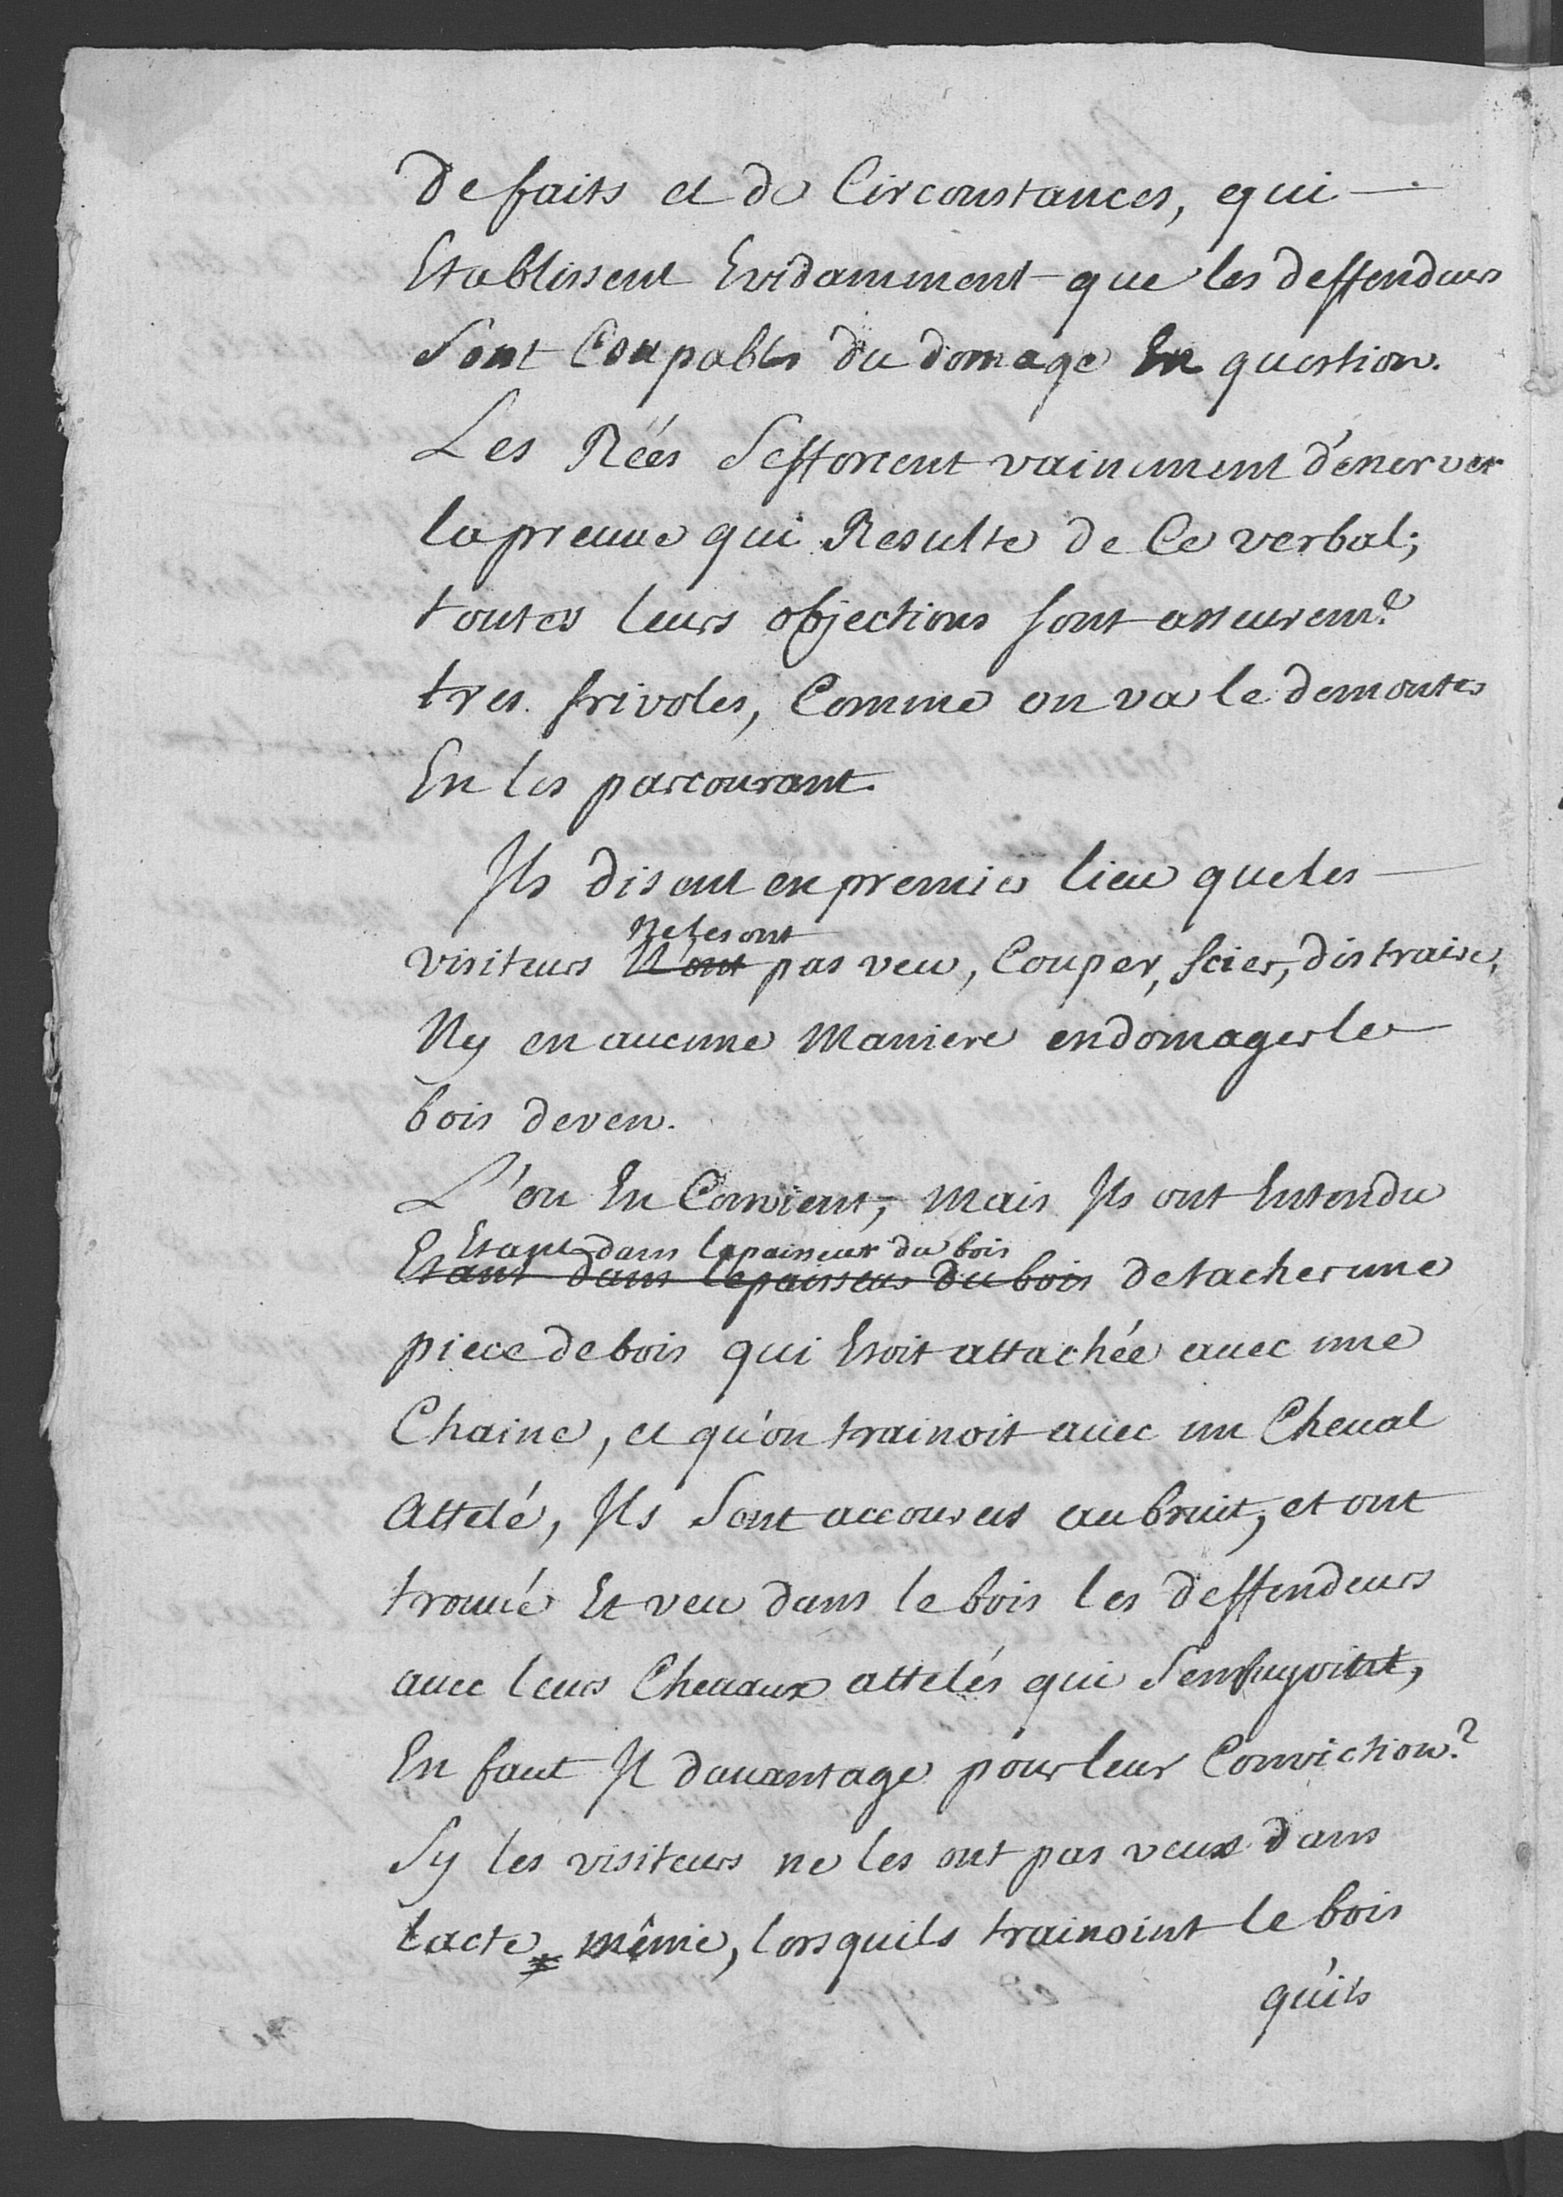 De faits et de Circonstances, qui
Etablissent Evidamment que les deffendeurs
Sont Coupables du domage En question.
Les Rées Sefforcent vainement d'énerver
la preuve qui Resulte de Ce verbal;
toutes leurs objections sont asseuremt
tres frivoles, Comme on va le demontrer
En les parcourant.
Ils disent en premier lieu que les
Ne les ont
visiteurs N'ont pas veu, Couper, Scier, distraire,
Ny en aucune Maniere endomager le
bois deven.
L'on En Convient, Mais Ils ont Entendu
Etant dans lepaisseur du bois
Etant dans lepaisseur du bois detacher une
piece de bois qui Etoit attachée avec une
Chaine, et qu'on trainoit avec un Cheval
Attelé, Ils Sont accourus au bruit, et ont
trouvé Et veu dans le bois les deffendeurs
avec leurs Chevaux attelés qui Senfuyoint,
En faut Il davantage pour leur Conviction?
Sy les visiteurs ne les ont pas veus dans
lacte même, lorsquils trainoint le bois
qu'ils